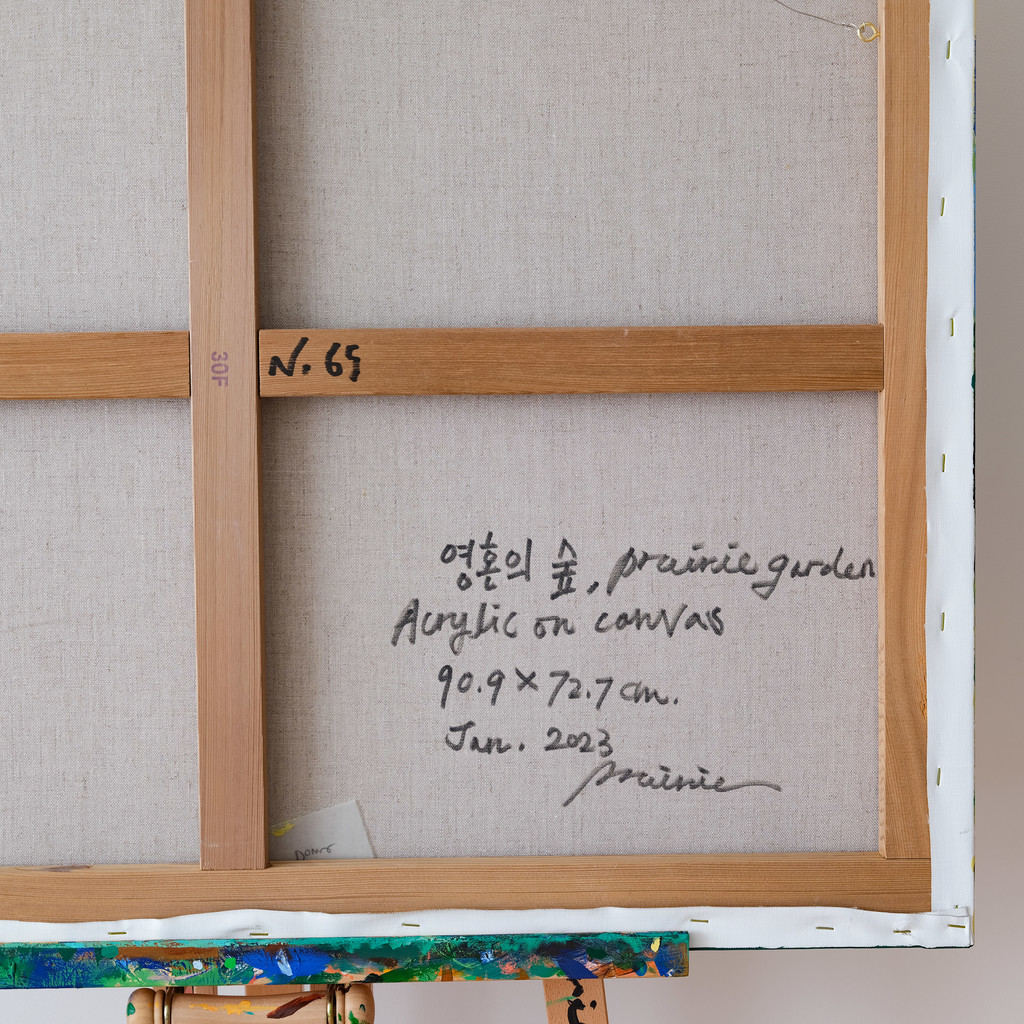 30F
N. 65
영혼의 숲, prairie garden
Acrylic on canvas
90.9 × 72.7 cm.
Jan. 2023
prairie